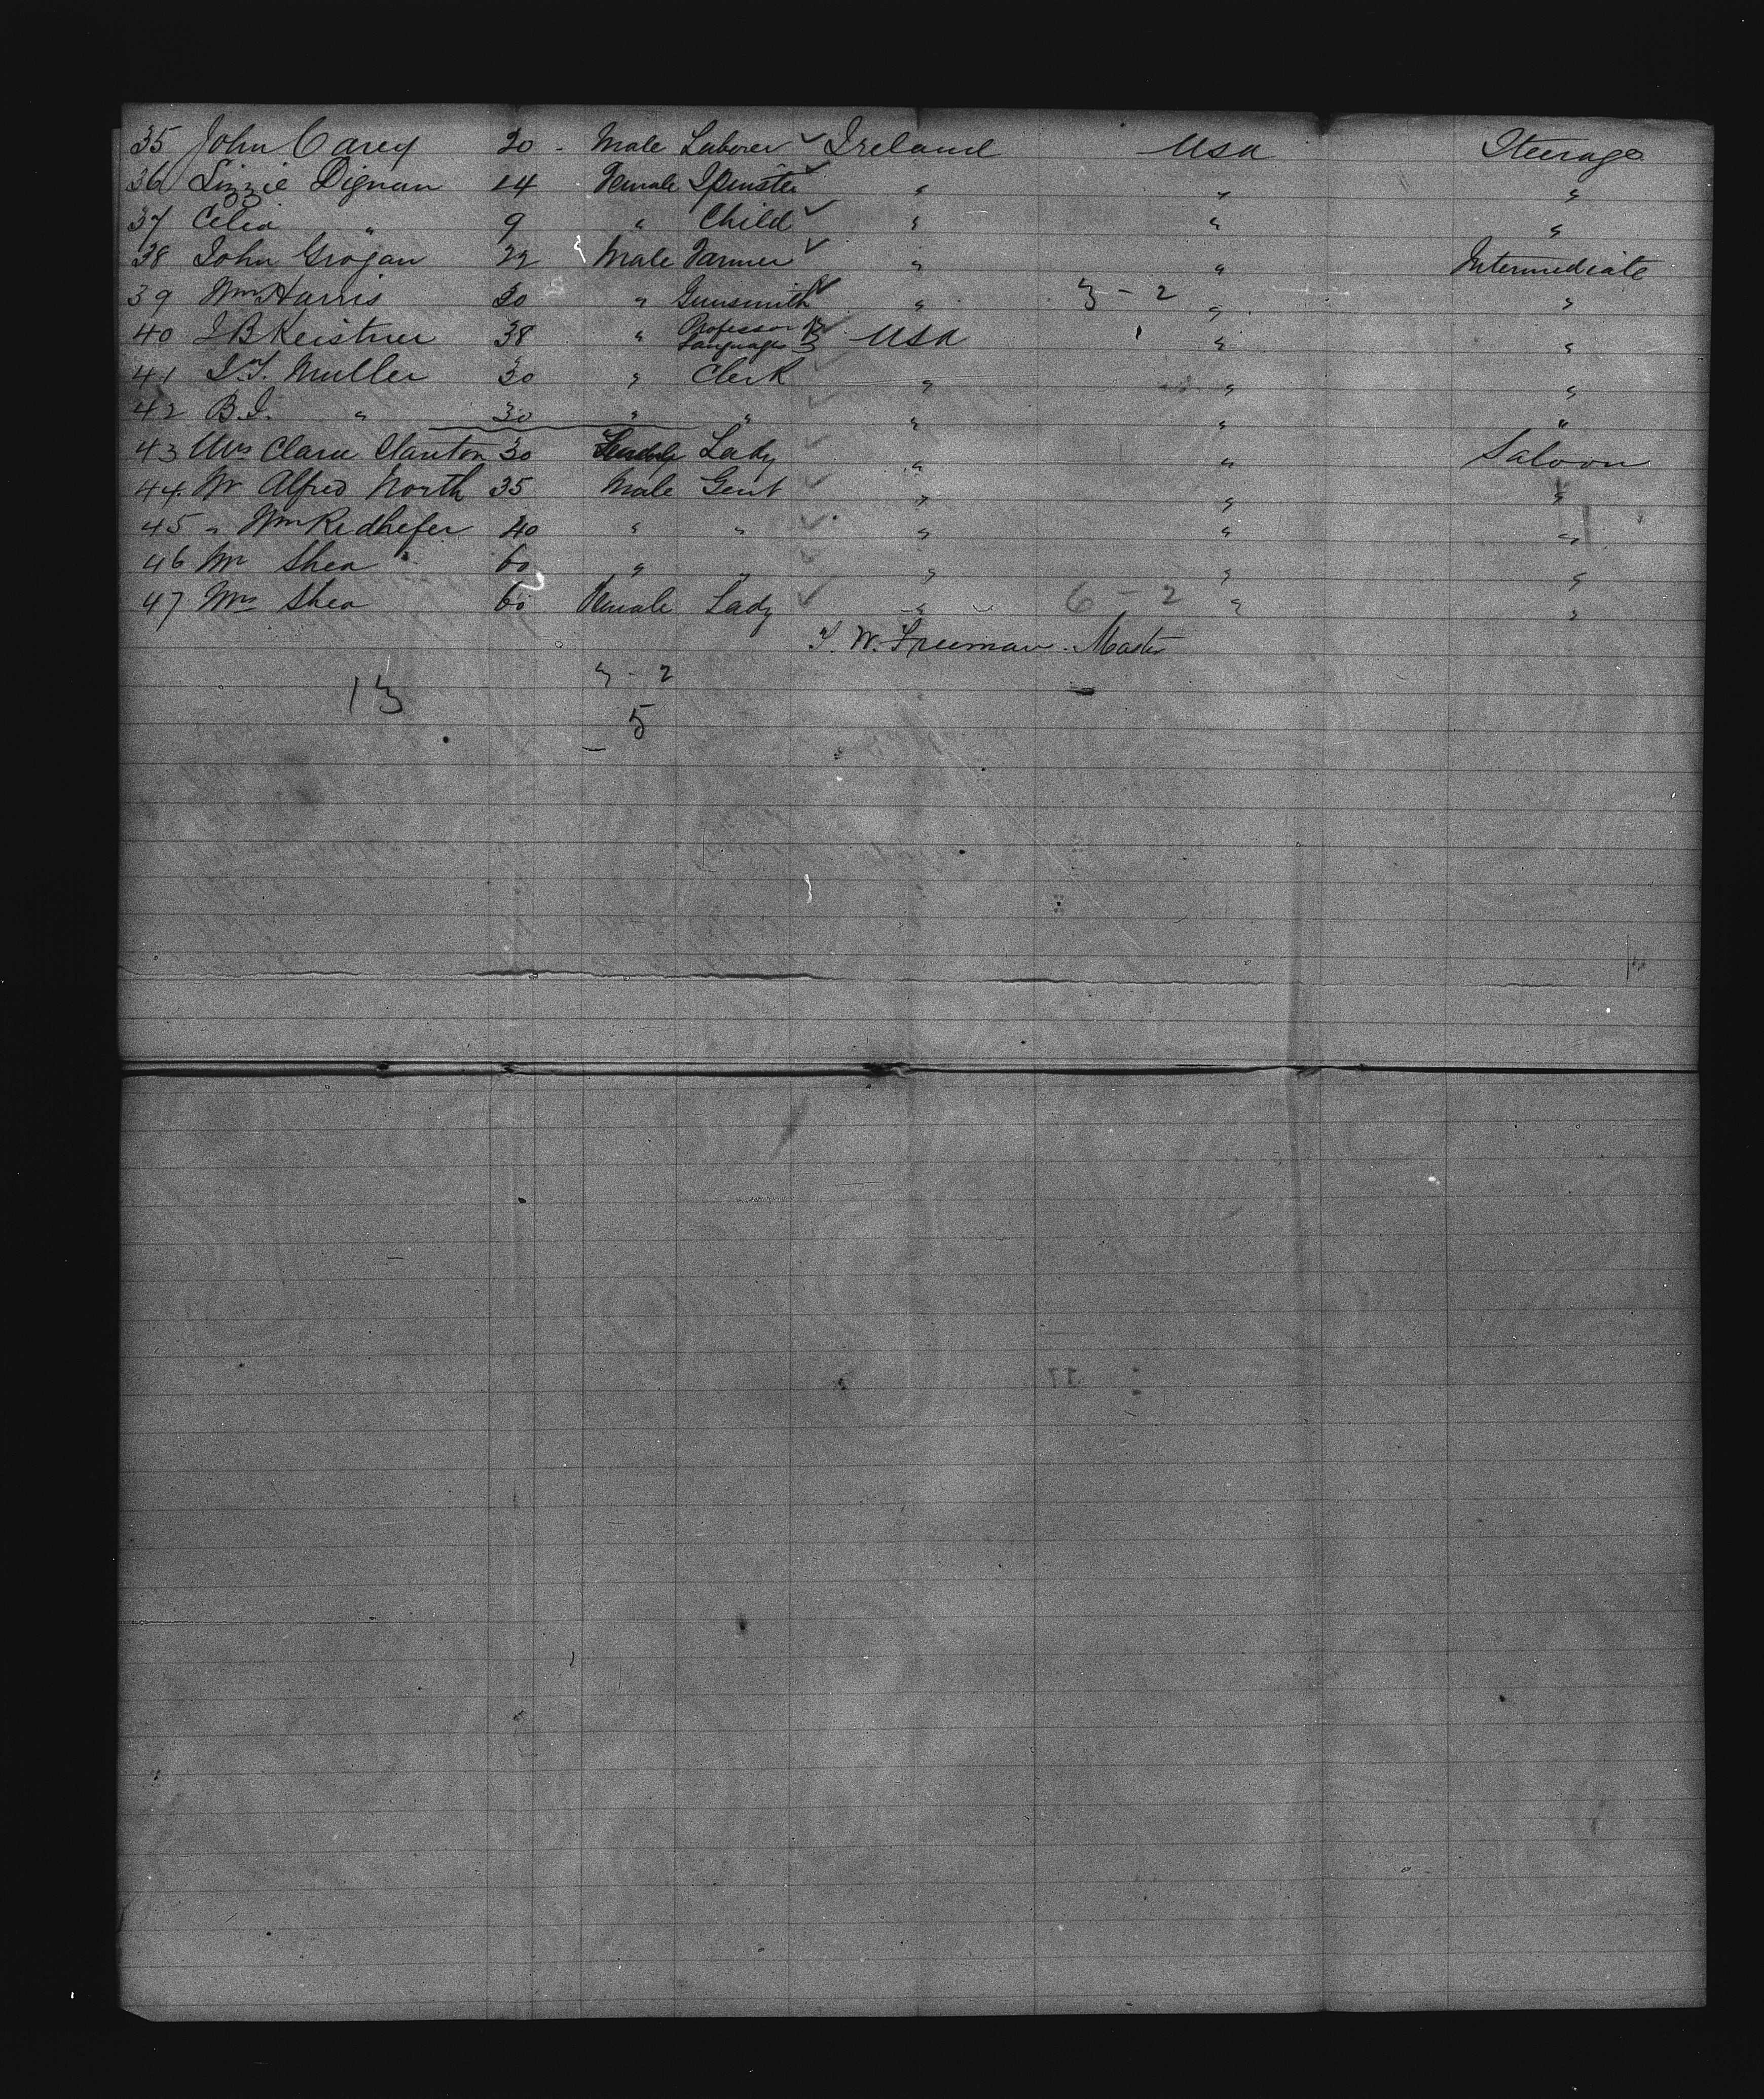 35 John Carey 20 - Male Laborer ✓ Ireland USA Steerage
36 Lizzie Dignan 14 Female Spinster ✓ " " "
37 Celia " 9 " Child ✓ " " "
38 John Grogan 22 Male Farmer ✓ " " Intermediate
39 Wm Harris 30 " Gunsmith ✓ " 3 - 2 " "
40 J B Keistner 38 " Professor of Languages ✓ USA " "
41 Muller 30 " Clerk ✓ " " "
42 B.J. " 30 " " ✓ " " "
43 Mrs Clara Clanton 30 Lady ✓ " " Saloon
44 Mr Alfred North 35 Male Gent ✓ " " "
45 " Wm Redhefer 40 " " ✓ " " "
46 Mr Shea 60 " " ✓ " " "
47 Mrs Shea 60 Female Lady ✓ " 6 - 2 " "
T. W. Freeman - Master
13 3 - 2
5